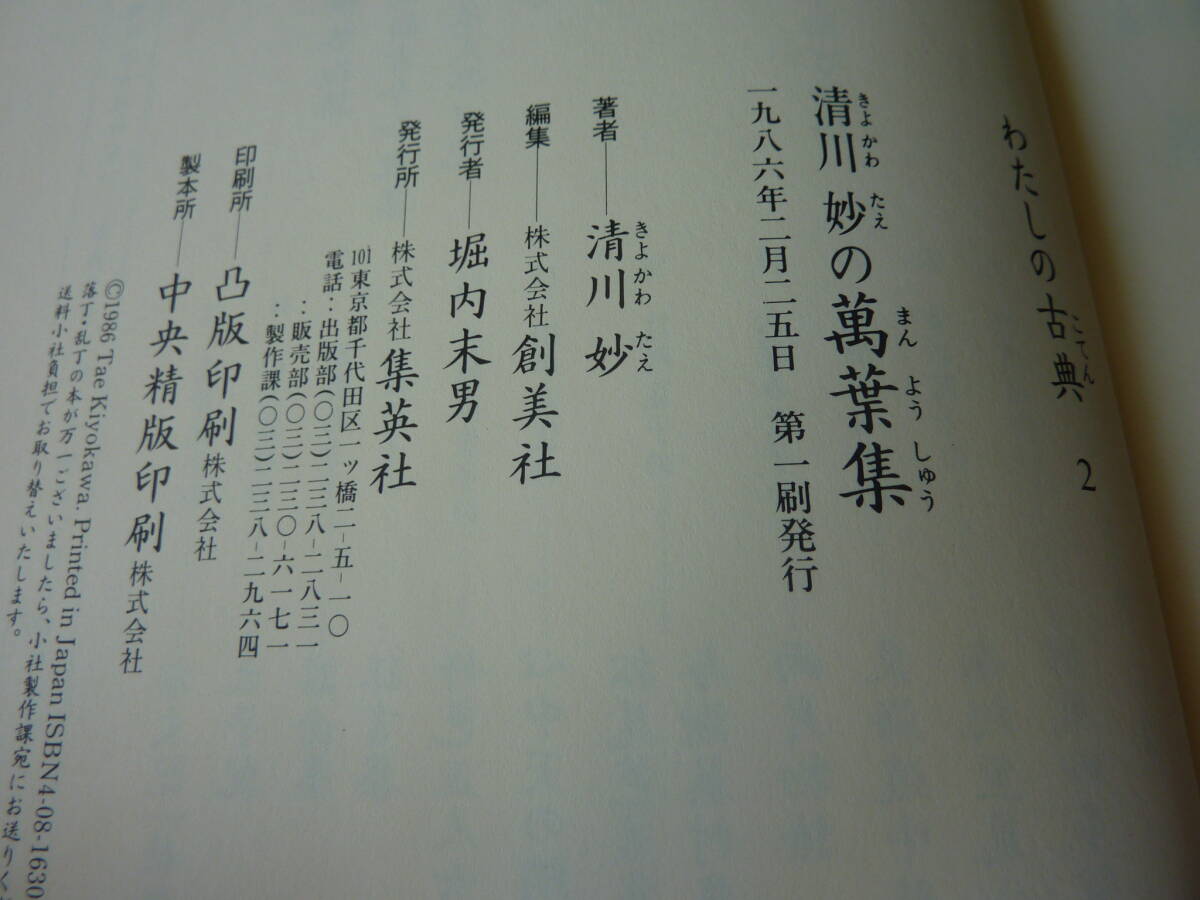 わたしの古典 2
こてん
清川 妙の萬葉集
きよかわ たえ まんようしゅう
一九八六年二月二五日 第一刷発行
著者――清川 妙
きよかわ たえ
編集――株式会社 創美社
発行者――堀内末男
発行所――株式会社 集英社
101東京都千代田区一ッ橋二-五-一〇
電話:出版部(〇三)二三八-二八三一
:販売部(〇三)二三〇-六一七一
:製作課(〇三)二三八-二九六四
印刷所――凸版印刷 株式会社
製本所――中央精版印刷 株式会社
©1986 Tae Kiyokawa. Printed in Japan ISBN4-08-1630
落丁・乱丁の本が万一ございましたら、小社製作課宛にお送りく
送料小社負担でお取り替えいたします。